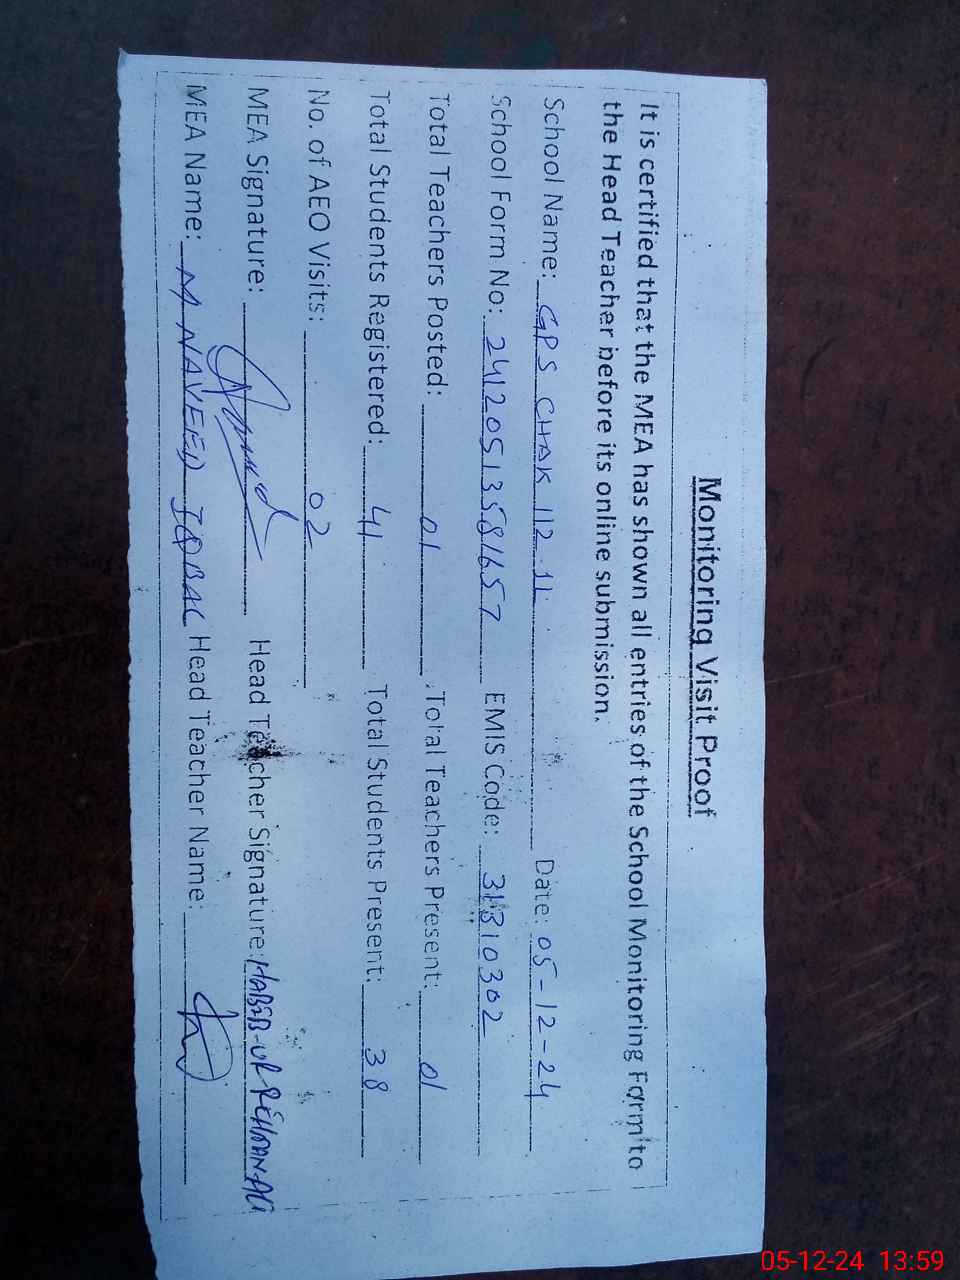 Monitoring Visit Proof
It is certified that the MEA has shown all entries of the School Monitoring Form to
the Head Teacher before its online submission.
School Name: GPS CHAK 112 1L Date: 05-12-24
School Form No: 24120513581657 EMIS Code: 31310302
Total Teachers Posted: 01 Total Teachers Present: 01
Total Students Registered: 41 Total Students Present: 38
No. of AEO Visits: 02
MEA Signature: Head Teacher Signature: HABIB-UR REHMAN ALI
MEA Name: M NAVEED IQBAL Head Teacher Name:
05-12-24 13:59